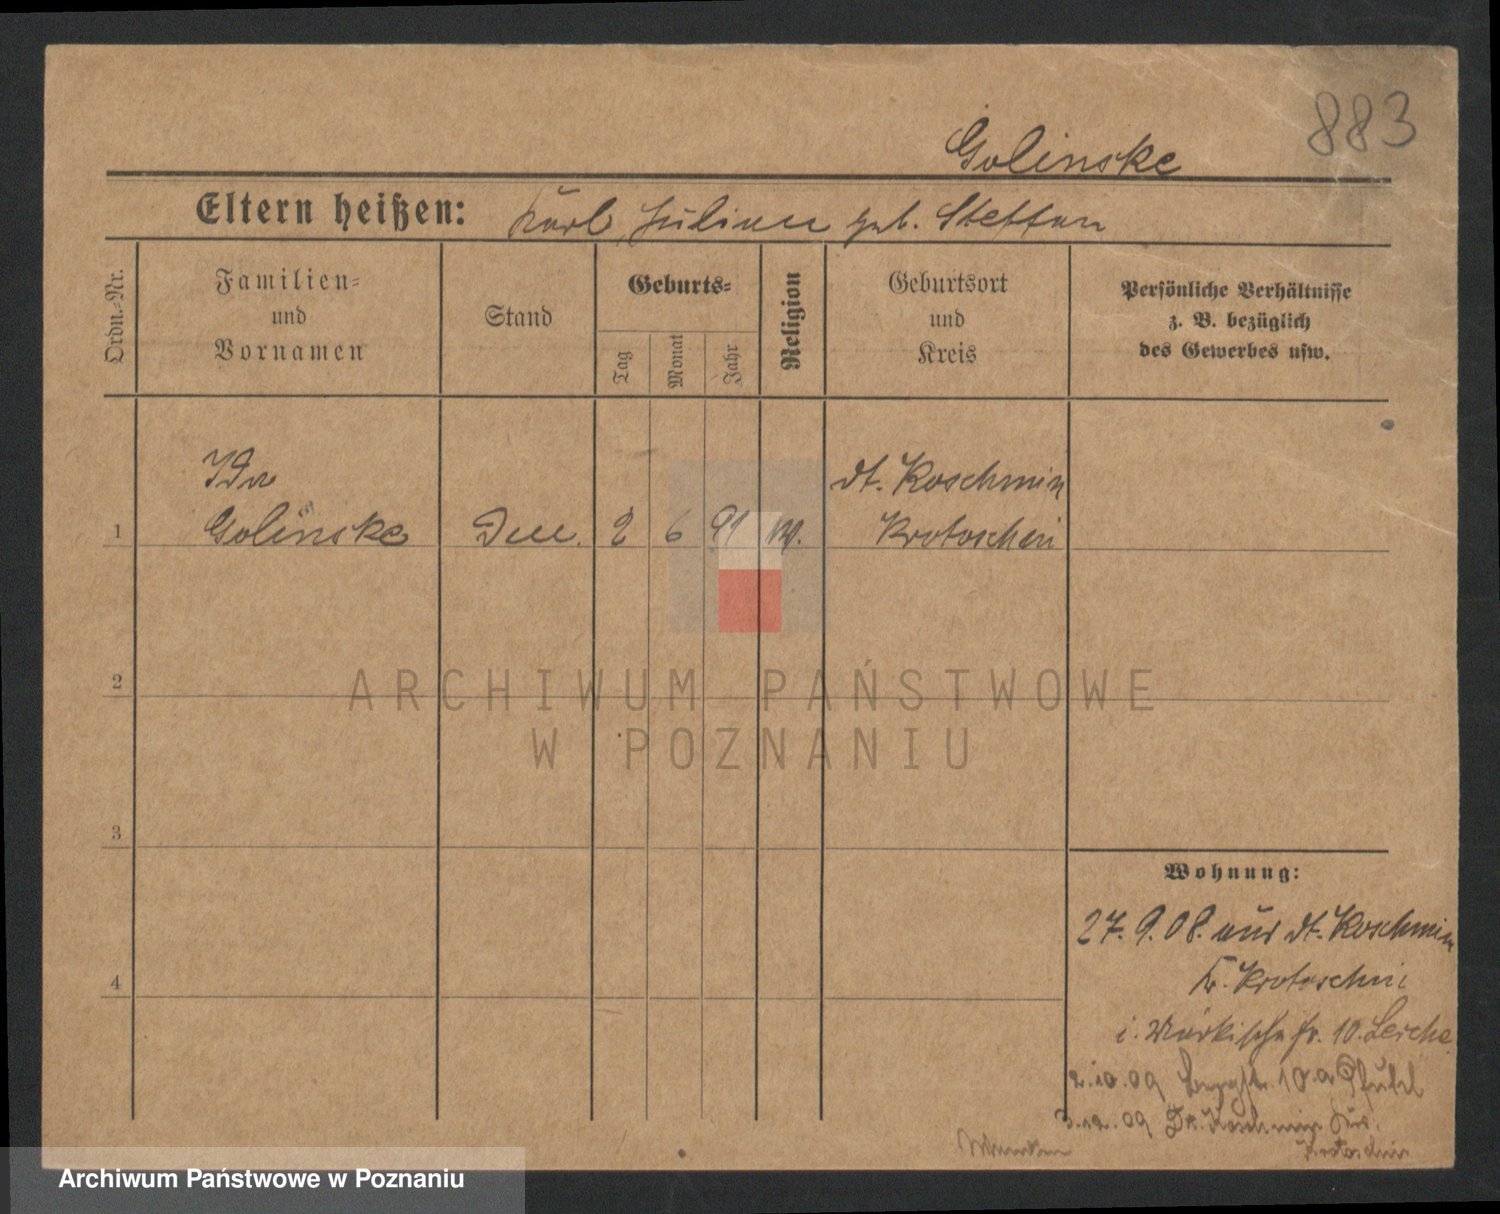 883
Golinske
Eltern heißen: Karl, Juliane geb. Steffan
Ordn.-Nr.
Familien-
und
Vornamen
Stand
Geburts-
Tag
Monat
Jahr
Religion
Geburtsort
und
Kreis
Persönliche Verhältnisse
z. B. bezüglich
des Gewerbes usw.
Ida dt. Koschmin
1 Golinske 2 6 91 Krotoschin
2
ARCHIWUM PAŃSTWOWE
W POZNANIU
3
Wohnung:
27. 9. 08. aus dt. Koschmin
Kr. Krotoschin
i. Märkische str. 10. Lerche
4
2.10.09 Bergstr. 10a Pfuhl
3.12.09 Dt. Koschmin Krs.
Krotoschin
Archiwum Państwowe w Poznaniu